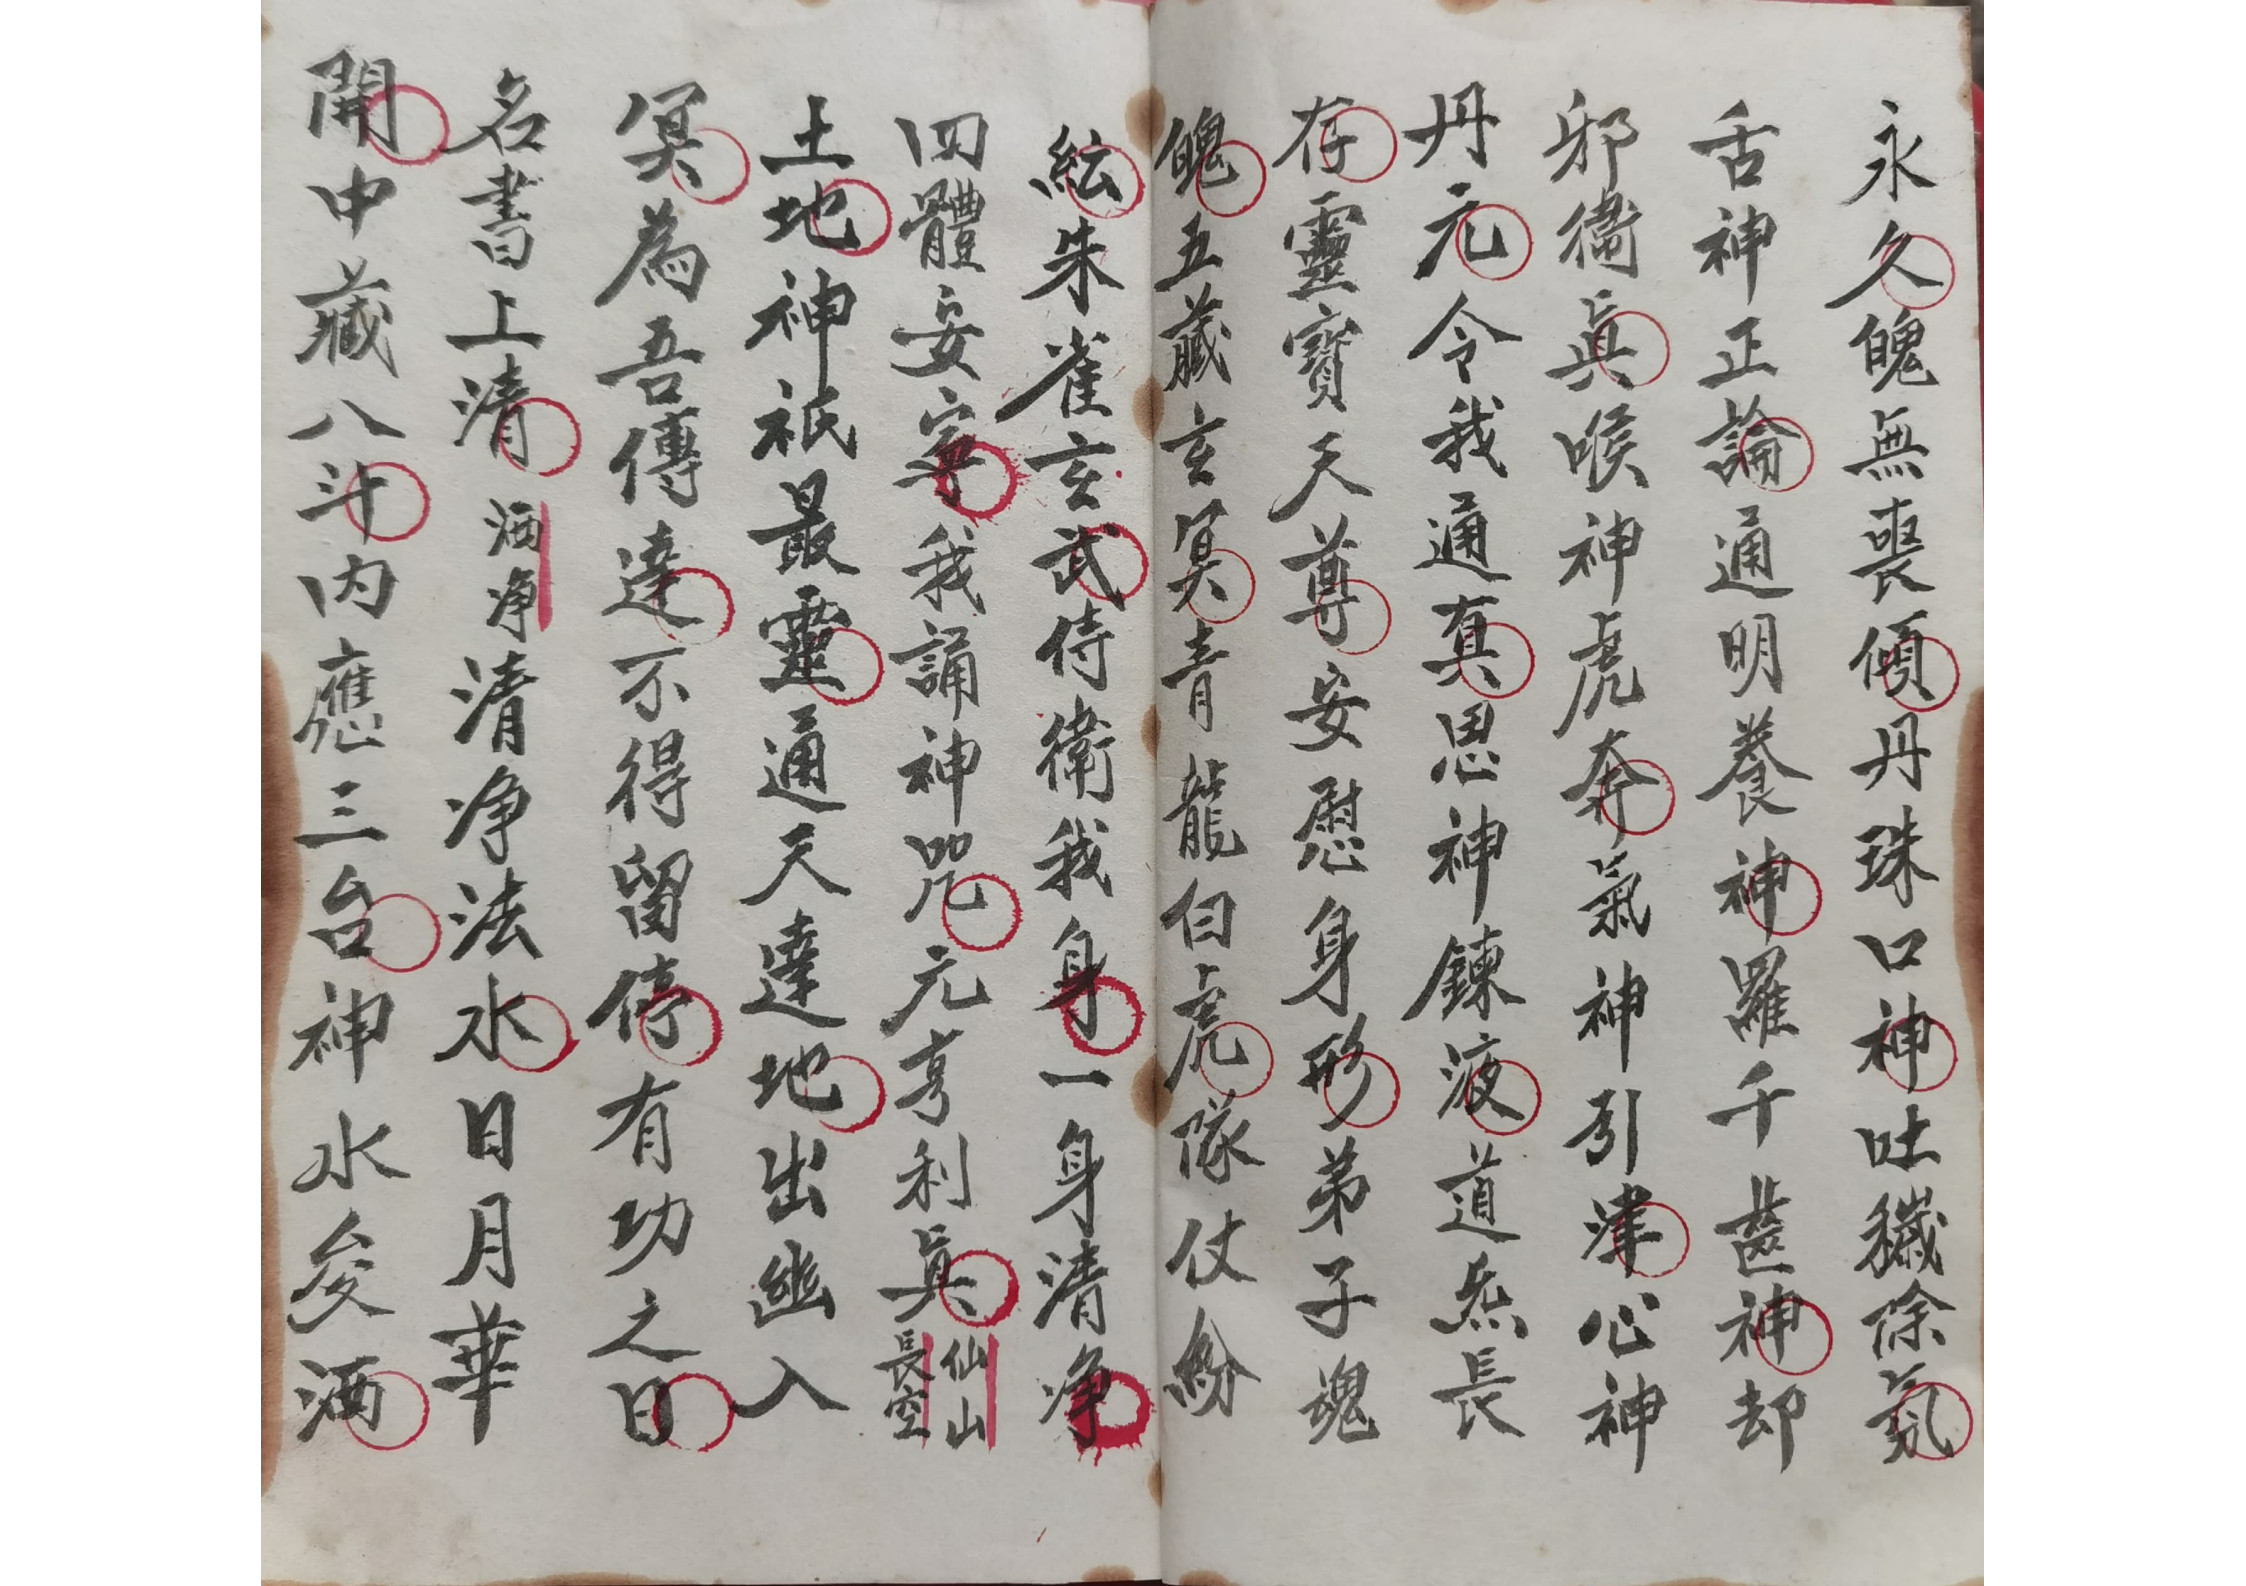 永久魄無喪傾丹珠口神吐穢除氛
舌神正論通明養神羅千齒神却
邪衞眞喉神虎奔氣神引津心神
丹元令我通真思神鍊液道炁長
存靈寶天尊安慰身形弟子魂
魄五藏玄冥青龍白虎隊仗紛
紜朱雀玄武侍衛我身一身清净
四體安寧我誦神咒元亨利真
仙山
長空
土地神祇最靈通天達地出幽入
冥為吾傳達不得留停有功之日
名書上清
洒净
清净法水日月華
開中藏八斗内應三台神水癸洒